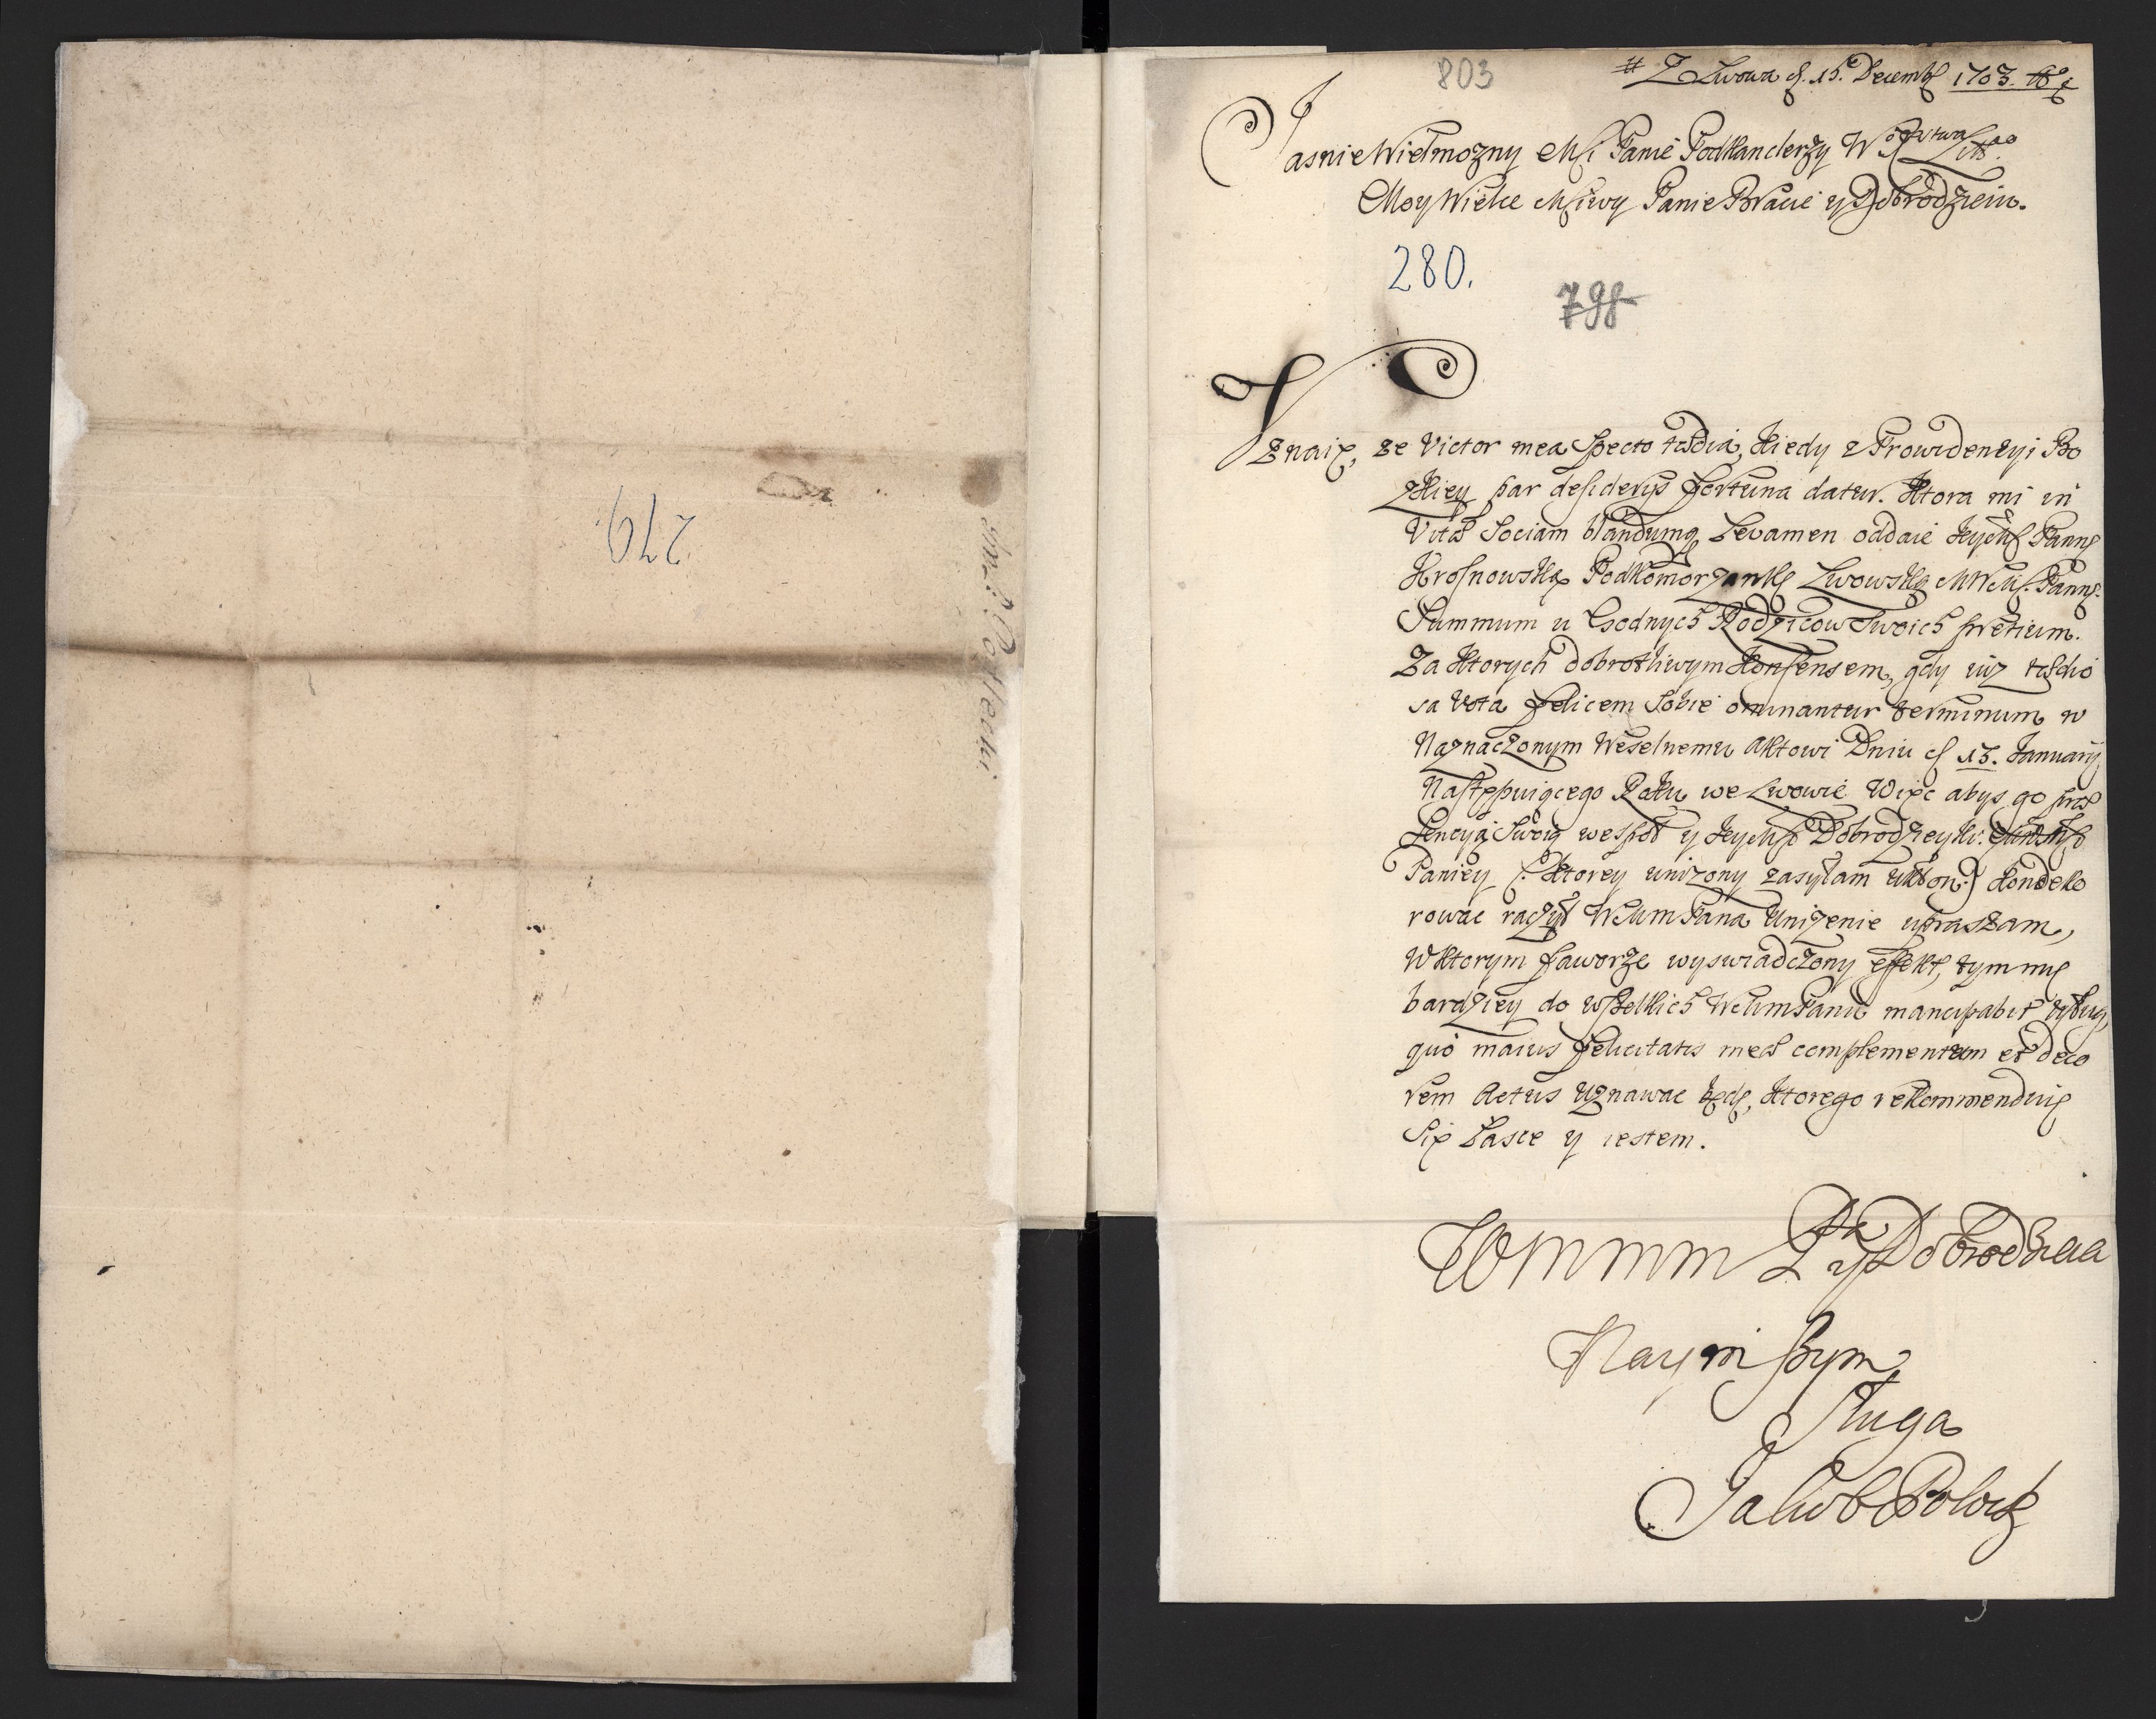 279.
JMci P. Pollecki
803
# Z Lwowa d. 15. Decembr 1703.
Jasnie Wielmozny Msci Panie Podkanclerzy W. X. Litt.
Moy Wielce Msciwy Panie Bracie y Dobrodzieiu.
280.
798
Uznaię, ze Victor mea specto tædia, kiedy z Prowidencyi Bo
zkiey par desiderijs fortuna datur. Ktora mi in
Vitæ Sociam blandumq Levamen oddaie Jeymć Pannę
Krosnowską Podkomorzankę Lwowską MWMć. Pannę.
Summum u Godnych Rodzicow Swoich pretium.
Za ktorych dobrotliwym Konsensem, gdy iuz tædio
sa Vota felicem sobie ominantur terminum w
Naznaczonym Weselnemu Aktowi Dniu d 13. January
Następuiącego Roku we Lwowie. Więc abys go præ
sencyą Swoią wespoł y Jeymć Dobrodzieyki.
Paniey (: Ktorey unizony zasyłam ukłon :) kondeko
rowac raczył WMM Pana Unizenie upraszam,
W ktorym faworze wyswiadczony effekt, tym mię
bardziey do wszelkich WMM Panu mancipabit usług,
quo maius felicitatis meæ complementum et deco
rem Actus uznawac będę, ktorego rekommenduię
się Łasce y iestem.
WMMM Pa y Dobrodzieia
Nayniszym
Sługa
Jakub